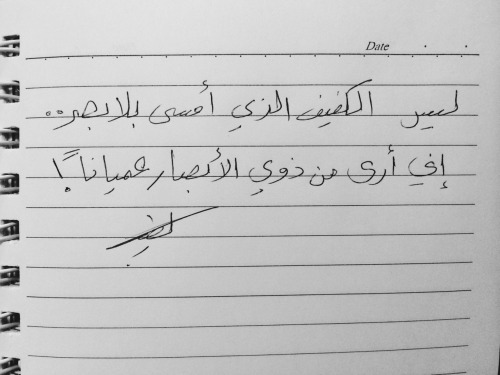 Date
ليس الكفيف الذي أمسى بلا بصر..
إني أرى من ذوي الأبصار عمياناً!